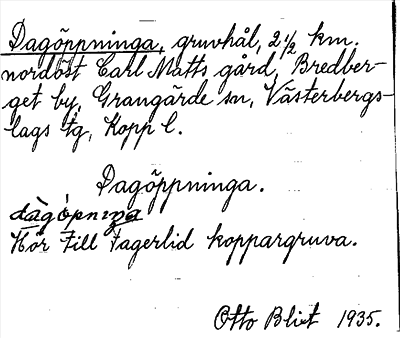 Dagöppninga, gruvhål, 2 1/2 km.
nordöst Carl Matts gård, Bredber-
get by, Grangärde sn, Västerbergs-
lags tg, Kopp l.
Dagöppninga.
dàgòpnıŋa
Hör till Fagerlid koppargruva.
Otto Blixt 1935.